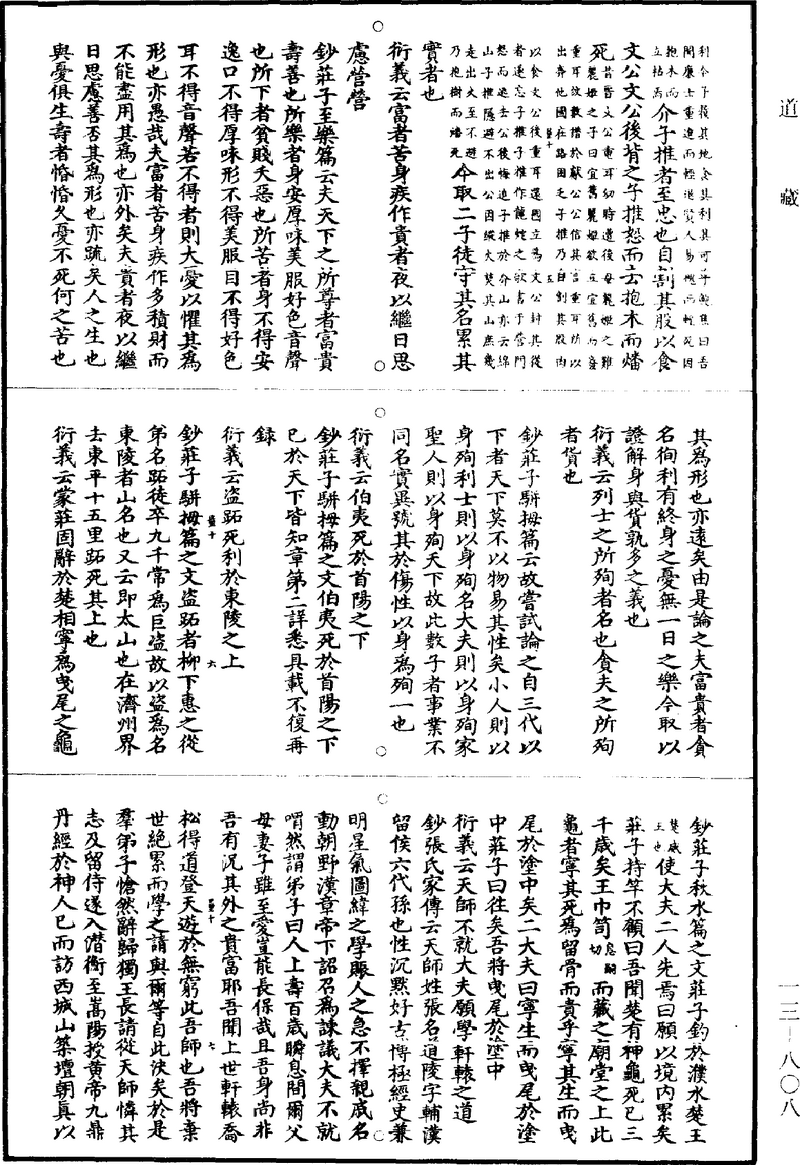 道藏
一三—八〇八
利今子履其地食其利其可乎鮑焦曰吾
聞廉士重進而輕退賢人易愧而輕死因
抱木而
立枯焉
介子推者至忠也自割其股以食
文公文公後背之子推怒而去抱木而燔
死
昔晉文公重耳幼時遭後母麗姬之難
麗姬之子曰宜舊麗姬欲立宜舊而
重耳故數譖於獻公公信其言重耳所以
出奔他國在路困乏子推乃自割其股肉
以食文公後重耳還國立為文公封其從
者遂忘子推子推作龍蛇之歌書于營門
怒而逃去公後悔追子推於介山亦云綿
山子推隱避不出公因縱火焚其山庶幾
走出火至不避子推
乃抱樹而燔死
今取二子徒守其名累其
實者也
衍義云富者苦身疾作貴者夜以繼日思
慮營營
鈔莊子至樂篇云夫天下之所尊者富貴
壽善也所樂者身安厚味美服好色音聲
也所下者貧賤夭惡也所苦者身不得安
逸口不得厚味形不得美服目不得好色
耳不得音聲若不得者則大憂以懼其為
形也亦愚哉夫富者苦身疾作多積財而
不能盡用其為也亦外矣夫貴者夜以繼
日思慮善否其為形也亦疏矣人之生也
與憂俱生壽者惛惛久憂不死何之苦也
其為形也亦遠矣由是論之夫富貴者貪
名徇利有終身之憂無一日之樂今取以
證解身與貨孰多之義也
衍義云列士之所殉者名也貪夫之所殉
者貨也
鈔莊子駢拇篇云故嘗試論之自三代以
下者天下莫不以物易其性矣小人則以
身殉利士則以身殉名大夫則以身殉家
聖人則以身殉天下故此數子者事業不
同名實異號其於傷性以身為殉一也
衍義云伯夷死於首陽之下
鈔莊子駢拇篇之文伯夷死於首陽之下
已於天下皆知章第二詳悉具載不復再
録
衍義云盜跖死利於東陵之上
鈔莊子駢拇篇之文盜跖者柳下惠之從
弟名跖徒卒九千常為巨盜故以盜為名
東陵者山名也又云即太山也在濟州界
去東平十五里跖死其上也
衍義云蒙莊固辭於楚相寧為曳尾之龜
鈔莊子秋水篇之文莊子釣於濮水楚王
楚威
王也
使大夫二人先焉曰願以境内累矣
莊子持竿不顧曰吾聞楚有神龜死已三
千歲矣王巾笥
息嗣
切
而藏之廟堂之上此
龜者寧其死為留骨而貴乎寧其生而曳
尾於塗中矣二大夫曰寧生而曳尾於塗
中莊子曰往矣吾將曳尾於塗中
衍義云天師不就大夫願學軒轅之道
鈔張氏家傳云天師姓張名道陵字輔漢
留侯六代孫也性沉默好古博極經史兼
明星氣圖緯之學賑人之急不擇親戚名
動朝野漢章帝下詔召為諫議大夫不就
喟然謂弟子曰人上壽百歲瞬息間爾父
母妻子雖至愛豈能長保哉且吾身尚非
吾有況其外之貴富耶吾聞上世軒轅喬
松得道登天遊於無窮此吾師也吾將棄
世絶累而學之請與爾等自此決矣於是
羣弟子愴然辭歸獨王長請從天師憐其
志及留侍遂入潛衡至嵩陽授黃帝九鼎
丹經於神人已而訪西城山築壇朝真以